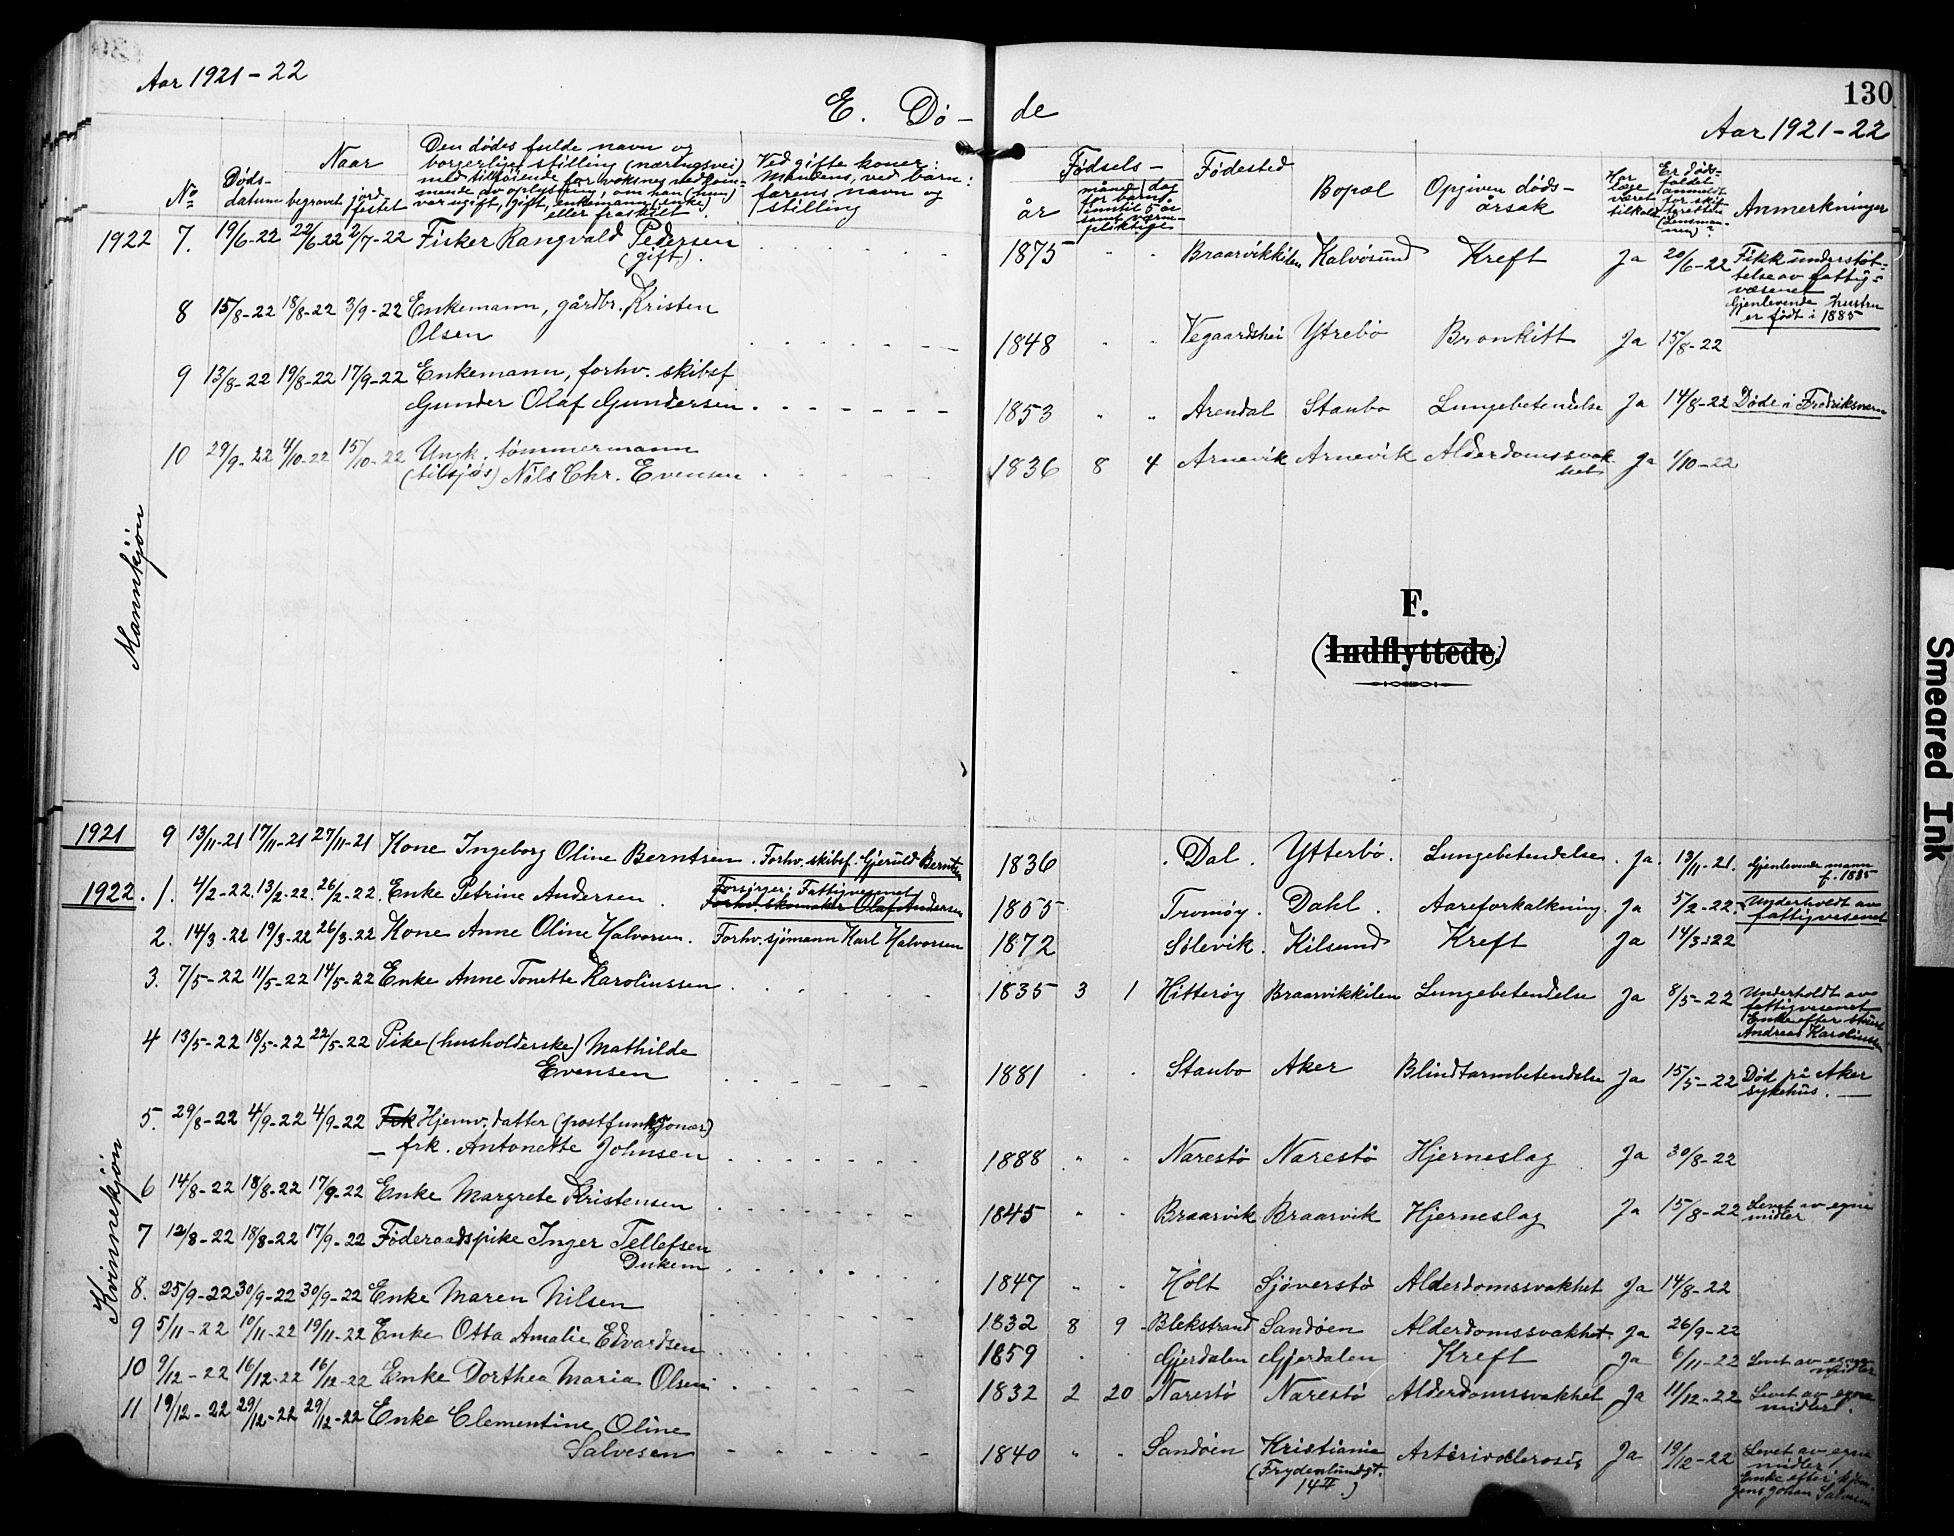 Aar 1921-22
E. Dö-
de
130
Aar 1921-22
No
Naar
Döds-
datum
begravet
jord
festet
Den dödes fulde navn og
borgerlige stilling (næringsvei)
med tilföiende for voksnes vedkom-
mende av oplysning, om han (hun)
var ugift, gift, enkemann (enke)
eller fraskilt.
Ved gifte koner:
Mandens, ved barn:
farens navn og
stilling
Födsels-
år
måned dag
for barn
inntil 5 år
samt værne-
pliktige
Födested
Bopæl
Opgiven döds-
årsak
Har
læge
været
tilkaldt
Er döds-
faldet
anmeldt
for skif-
teretten
(lensman-
nen)?
Anmerkninger
1922 7. 19/6-22 22/6-22 2/7-22 Fisker Rangvald Pedersen
(gift).
1875 " " Braarvikkilen Kalvösund Kreft Ja 20/6-22 Fikk understöt-
telse av fattig-
væsenet
Gjenlevende hustru
er født i 1885
8 15/8-22 18/8-22 3/9-22 Enkemann, gårdbr. Kristen
Olsen
1848 " " Vegaardshei Ytrebö Bronkitt Ja 15/8-22
9 13/8-22 19/8-22 17/9-22 Enkemann, forhv. skibsf
Gunder Olaf Gundersen
1853 " " Arendal Staubo Lungebetendelse Ja 14/8-22 Döde i Fredriksværn
10 29/9-22 4/10-22 15/10-22 Ungk. tömmermann
(tilsjös) Nils Chr. Evensen
1836 8 4 Arnevik Arnevik Alderdomssvak
het Ja 1/10-22
Mannkjön
F.
(Indflyttede.)
1921 9 13/11-21 17/11-21 27/11-21 Kone Ingeborg Oline Berntsen. Forhv. skibsf. Gjeruld Berntsen
1836 Dal. Ytterbö. Lungebetendelse. Ja. 13/11-21. Gjenlevende mann
f. 1885
1922. 1. 4/2-22. 13/2-22. 26/2-22. Enke Petrine Andersen. Forsörger: Fattigvesenet
Forhv. skomaker Olaf Andersen
1855 Tromöy. Dahl. Aareforkalkning. Ja 5/2-22. Underholdt av
fattigvesenet
2. 14/3-22 19/3-22 26/3-22 Kone Anne Oline Halvorsen. Forhv. sjömann Karl Halvorsen
1872 Sölevik. Kilsund Kreft Ja 14/3-22
3. 7/5-22 11/5-22 14/5-22 Enke Anne Tonette Karoliussen
1835 3 1 Hitteröy Braarvikkilen Lungebetendelse Ja 8/5-22 Underholdt av
fattigvesenet
Enke efter
Andreas Karoliussen
4 13/5-22 18/5-22 22/5-22 Pike (husholderske) Mathilde
Evensen
1881 " " Staubo Aker Blindtarmbetendelse Ja 15/5-22 Död på Aker
sykehus.
5. 29/8-22 4/9-22 4/9-22 Frk Hjemv. datter (postfunksjonær)
- frk. Antonette Johnsen
1888 " " Narestö Narestö Hjerneslag Ja 30/8-22
6 14/8-22 18/8-22 17/9-22 Enke Margrete Kristensen
1845 " " Braarvik Braarvik Hjerneslag Ja 15/8-22 Levet av egne
midler
7 12/8-22 18/8-22 17/9-22 Föderaadspike Inger Tellefsen
Dukem
1847 " " Holt Sjöverstö Alderdomssvakhet Ja 14/8-22
8. 25/9-22 30/9-22 30/9-22 Enke Maren Nilsen
1832 8 9 Blekstrand Sandöen Alderdomssvakhet Ja 26/9-22
9 5/11-22 10/11-22 19/11-22 Enke Otta Amalie Edvardsen
1859 Gjerdalen Gjerdalen Kreft Ja 6/11-22 Levet av egne
midler
10 9/12-22 16/12-22 16/12-22 Enke Dorthea Maria Olsen
1832 2 20 Narestö Narestö Alderdomssvakhet Ja 11/12-22 Levet av egne
midler.
11 19/12-22 29/12-22 29/12-22 Enke Clementine Oline
Salvesen
1840 " " Sandöen Kristiania
(Frydenlundgt.
14 II.) Arteriosclerosis Ja 19/12-22 Levet av egne
midler
Enke efter
Johan Salvesen
Kvinnekjön
Smeared Ink